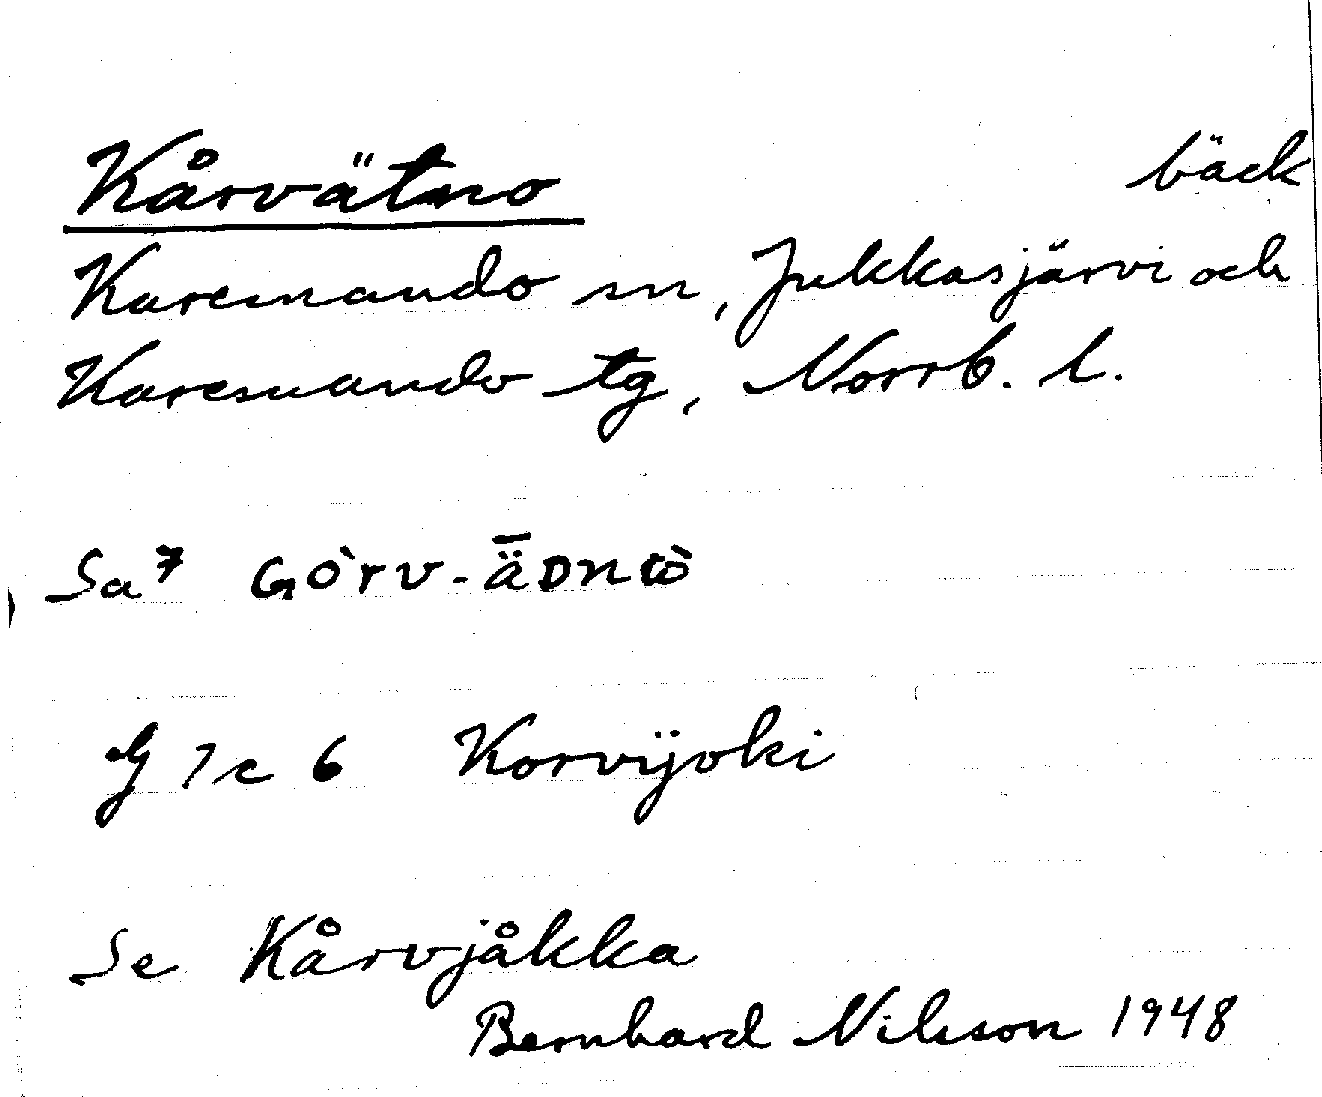 Kårvätno bäck
Karesuando sn, Jukkasjärvi och
Karesuando tg, Norrb. l.
Sa 7 GÒrv-ǟDnⱺ̀
G 7 c 6 Korvijoki
Se Kårvjåkka
Bernhard Nilsson 1948